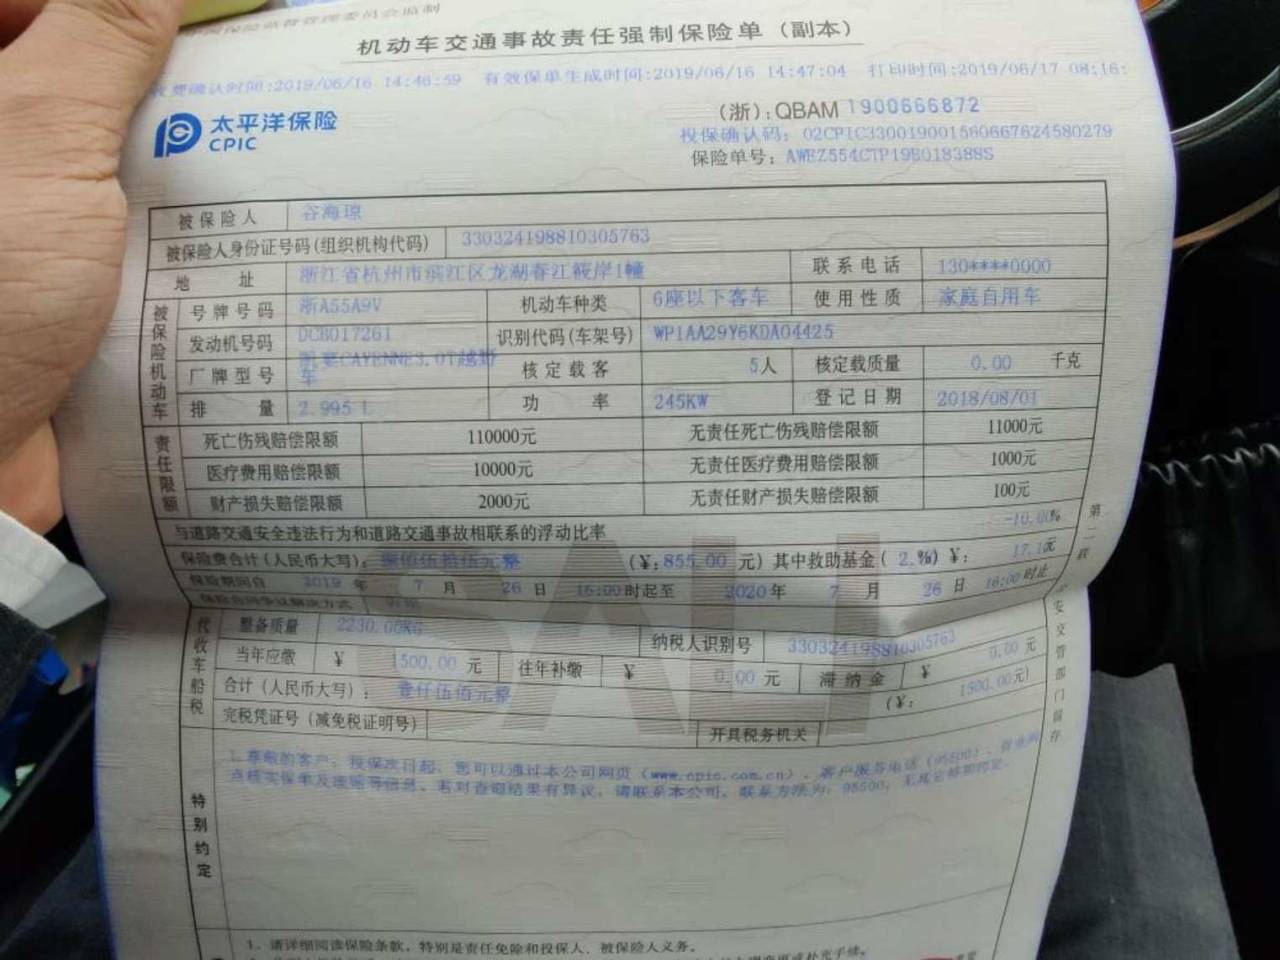 中国保险监督管理委员会监制
机动车交通事故责任强制保险单（副本）
收费确认时间:2019/06/16 14:46:59 有效保单生成时间:2019/06/16 14:47:04 打印时间:2019/06/17 08:16:
太平洋保险
CPIC
（浙）：QBAM 1900666872
投保确认码：02CPIC330019001560667624580279
保险单号：AWEZ554CTP19B018388S
被保险人 谷海琼
被保险人身份证号码(组织机构代码) 330324198810305763
地址 浙江省杭州市滨江区龙湖春江彼岸1幢 联系电话 130****0000
被保险机动车
号牌号码 浙A55A9V 机动车种类 6座以下客车 使用性质 家庭自用车
发动机号码 DCB017261 识别代码(车架号) WP1AA29Y6KDA04425
厂牌型号 CAYENNE3.0T越野车 核定载客 5人 核定载质量 0.00 千克
排量 2.995 L 功率 245KW 登记日期 2018/08/01
责任限额
死亡伤残赔偿限额 110000元 无责任死亡伤残赔偿限额 11000元
医疗费用赔偿限额 10000元 无责任医疗费用赔偿限额 1000元
财产损失赔偿限额 2000元 无责任财产损失赔偿限额 100元
与道路交通安全违法行为和道路交通事故相联系的浮动比率 -10.00%
保险费合计(人民币大写)：捌佰伍拾伍元整 (￥:855.00 元) 其中救助基金( 2.%) ￥： 17.1元
保险期间自 2019 年 7 月 26 日 16:00时起至 2020年 7 月 26 日 16:00时止
保险合同争议解决方式 诉讼
代收车船税
整备质量 2230.00KG 纳税人识别号 330324198810305763
当年应缴 ￥ 1500.00 元 往年补缴 ￥ 0.00 元 滞纳金 ￥ 0.00 元
合计(人民币大写)： 壹仟伍佰元整 (￥: 1500.00元)
完税凭证号(减免税证明号) 开具税务机关
SALI
特别约定
1.尊敬的客户：投保次日起，您可以通过本公司网页（www.cpic.com.cn）、客户服务电话（95500）、营业网
点核实保单及理赔等信息。若对查询结果有异议，请联系本公司。联系方法为：95500。无其它特别约定。
交管部门留存
1、请详细阅读保险条款，特别是责任免除和投保人、被保险人义务。